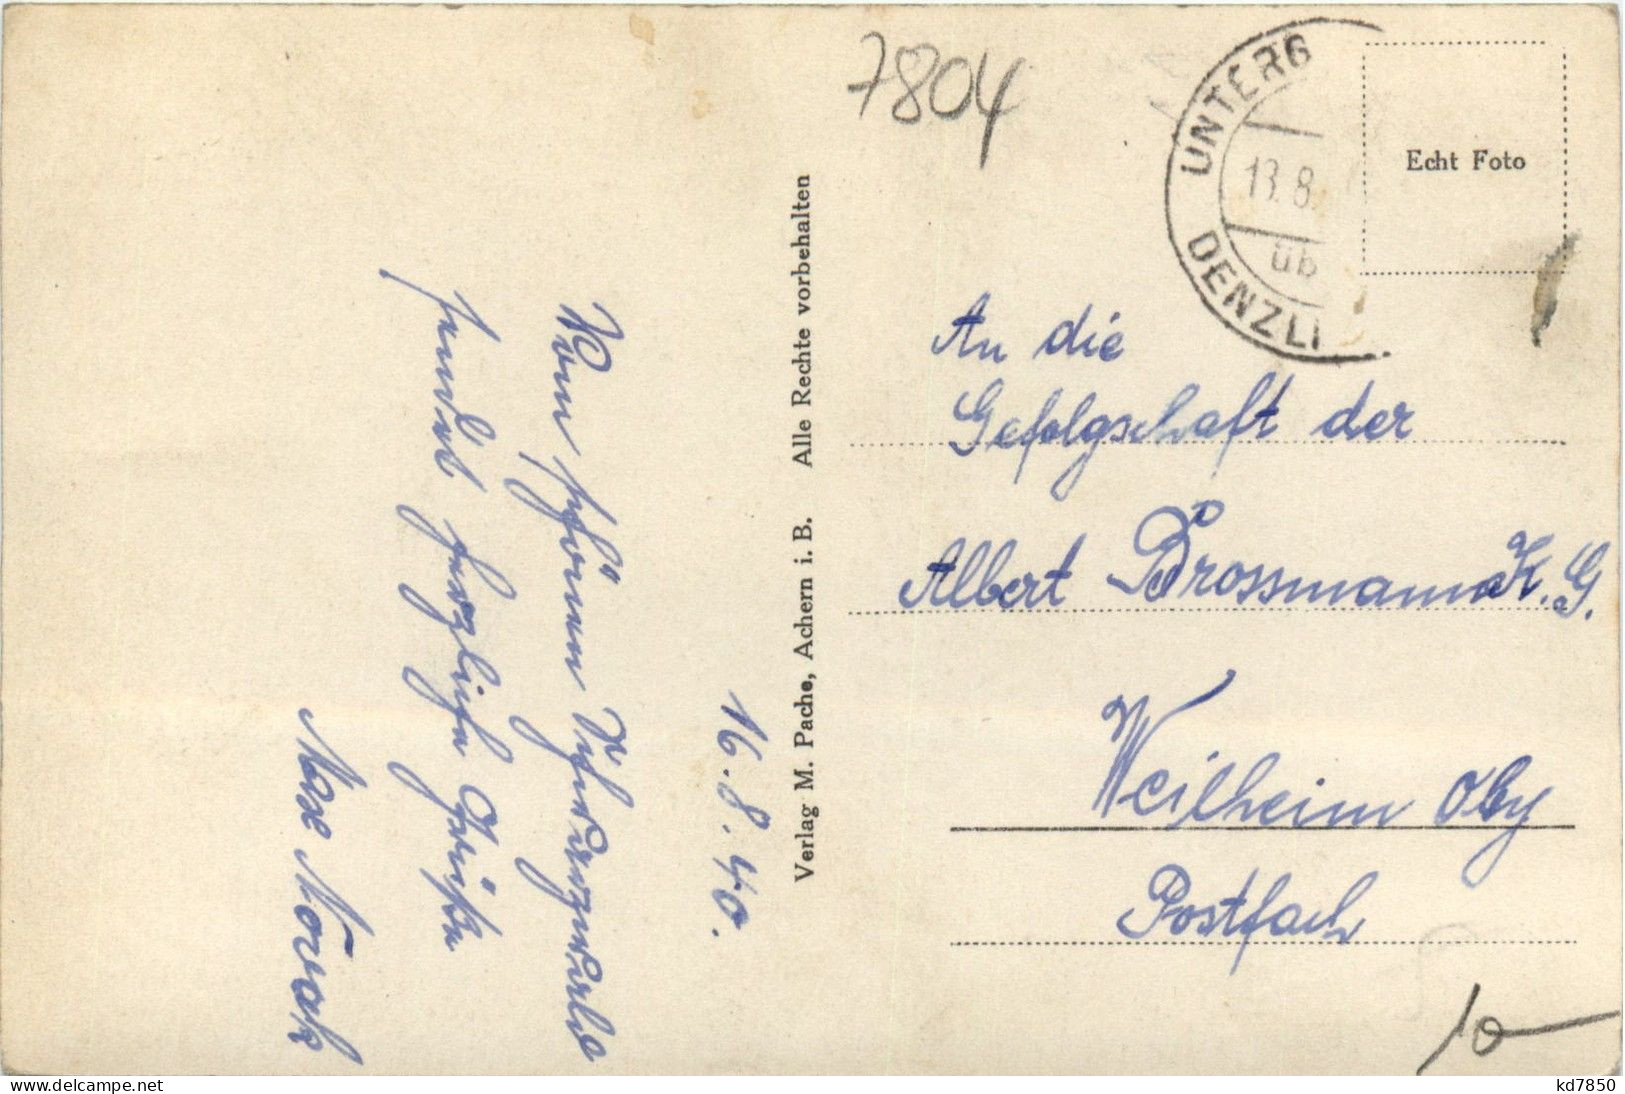 7804
UNTERG
13.8.
üb
DENZLI
Echt Foto
16.8.40.
Vom schönen Schwarzwalde
sendet herzliche Grüße
Max Novak
Verlag M. Pache, Achern i. B. Alle Rechte vorbehalten
An die
Gefolgschaft der
Albert Brossmann K.G.
Weilheim Oby
Postfach
10
kd7850
www.delcampe.net